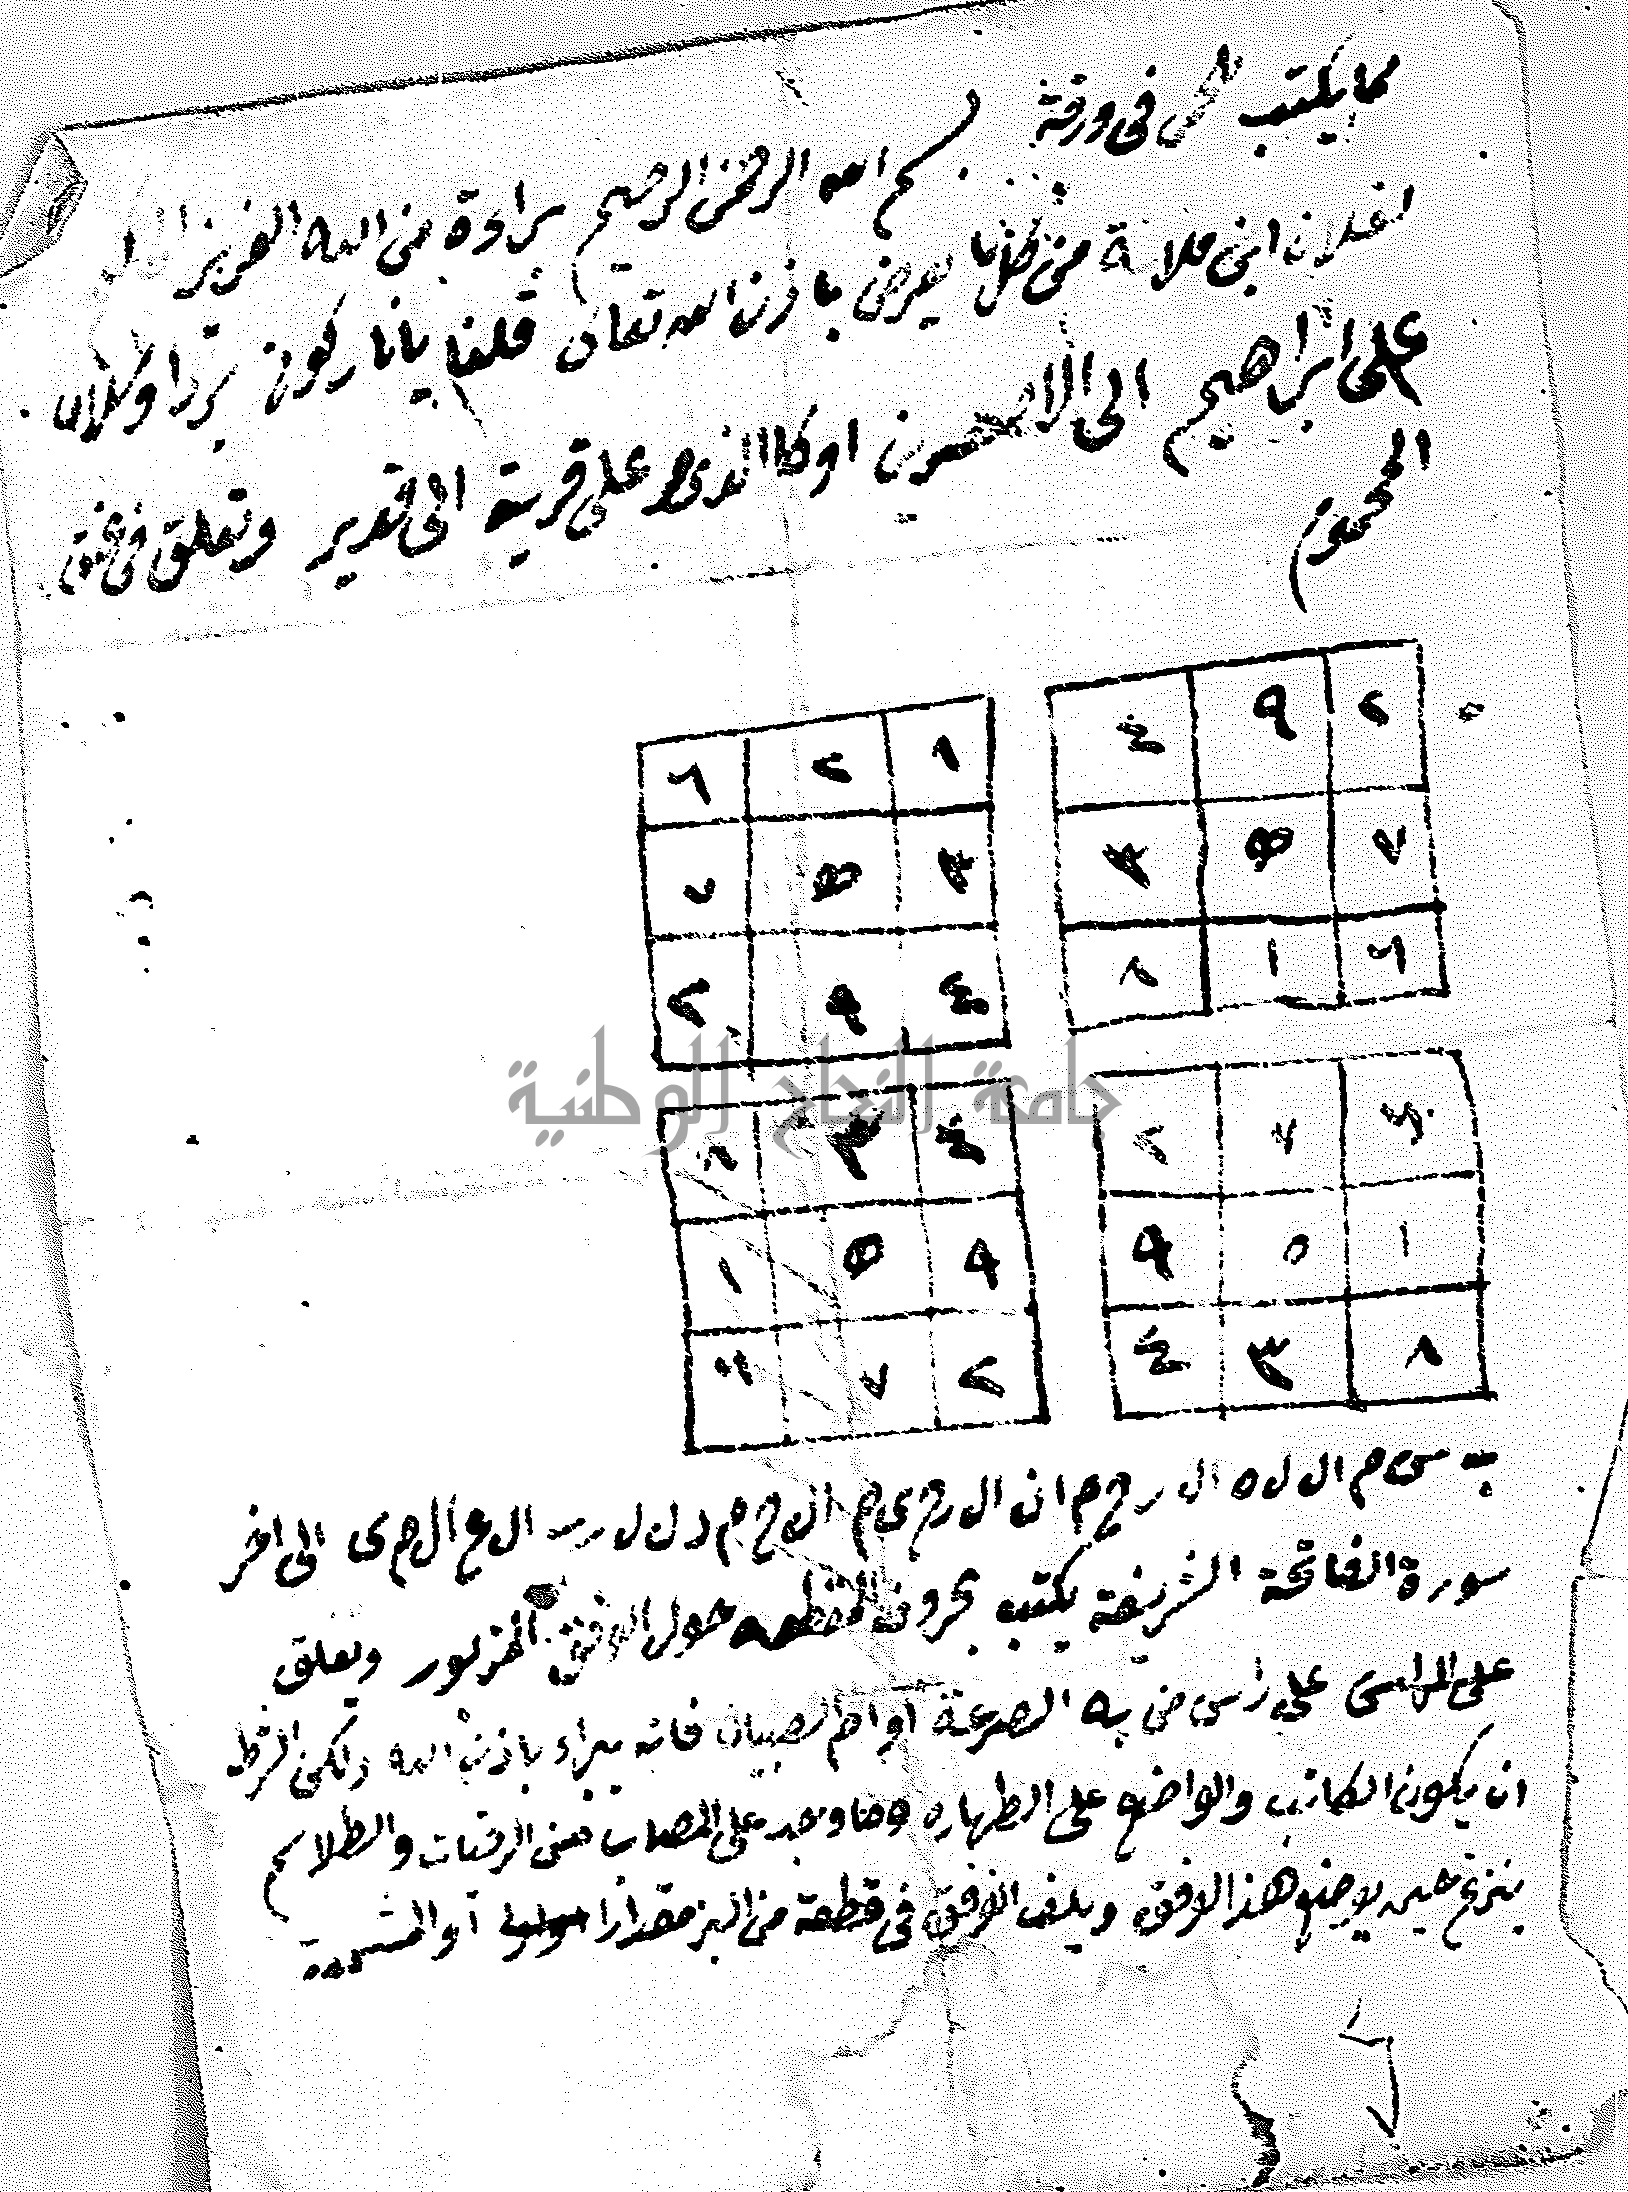 مما يكتب للحمى في ورقة
بسم الله الرحمن الرحيم براءة من الله العزيز
لفلان ابن فلانة من كل ما يعرض باذن الله تعالى قلنا يانار كوني بردا وسلاما
على ابراهيم الى الاخسرين او كالذي مر على قرية الى قدير وتعلق في عنق
المحموم
٤ ٩ ٢
٣ ٥ ٧
٨ ١ ٦
٦ ٢ ٨
٧ ٥ ٣
٢ ٩ ٤
٢ ٧ ٦
٩ ٥ ١
٤ ٣ ٨
٨ ٣ ٤
١ ٥ ٩
٦ ٧ ٢
جامعة النجاح الوطنية
ب س م ال ل ه ال ر ح م ا ن ال ر ح ي م ال ح م د ل ل ه ر ب ال ع ال م ي الى اخر
سورة الفاتحة الشريفة يكتب بحروف المقطعه حول الوفق المزبور ويعلق
على الراس على راس من به الصرعة او ام الصبيان فانه يبراء باذن الله ولكن الشرط
ان يكون الكاتب والواضع على الطهاره وما وجد على المصاب من الرقيات والطلاسم
ينزع حين يوضع هذا الوفق ويلف الوفق في قطعة من البز مقدارا او المشمع